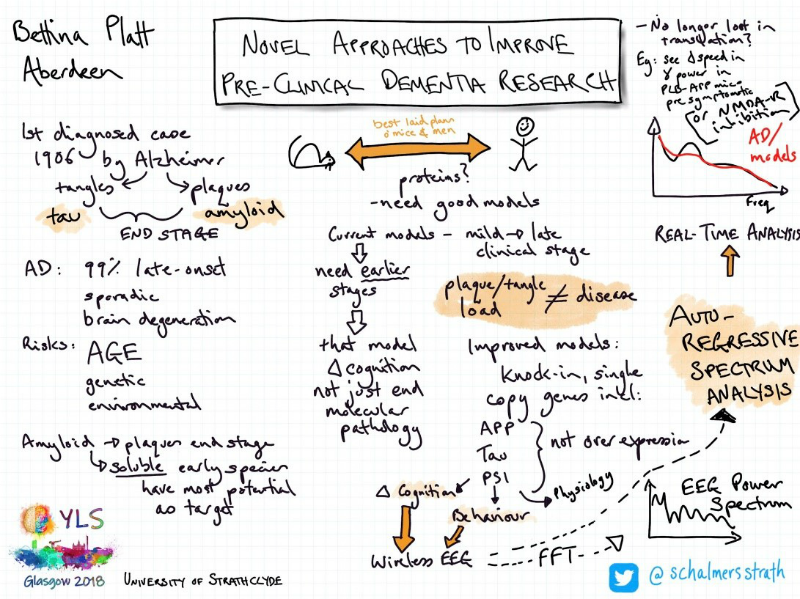 Bettina Platt
Aberdeen
NOVEL APPROACHES TO IMPROVE
PRE-CLINICAL DEMENTIA RESEARCH
- No longer lost in
translation?
Eg: see Δ speed in
γ power in
PLB-APP mice
presymptomatic
(or NMDA-R
inhibition)
AD/
models
Freq
REAL-TIME ANALYSIS
AUTO-
REGRESSIVE
SPECTRUM
ANALYSIS
1st diagnosed case
1906 by Alzheimer
tangles plaques
tau amyloid
END STAGE
AD: 99% late-onset
sporadic
brain degeneration
Risks: AGE
genetic
environmental
Amyloid → plaques end stage
soluble early species
have most potential
as target
best laid plans
o mice & men
proteins?
- need good models
Current models - mild → late
clinical stage
need earlier
stages
that model
Δ cognition
not just end
molecular
pathology
plaque/tangle ≠ disease
load
Improved models:
Knock-in, single
copy genes incl:
APP
Tau
PS1
not over expression
Δ Cognition
Behaviour
Physiology
Wireless EEG
FFT
EEG Power
Spectrum
YLS
Glasgow 2018
UNIVERSITY OF STRATHCLYDE
@schalmersstrath